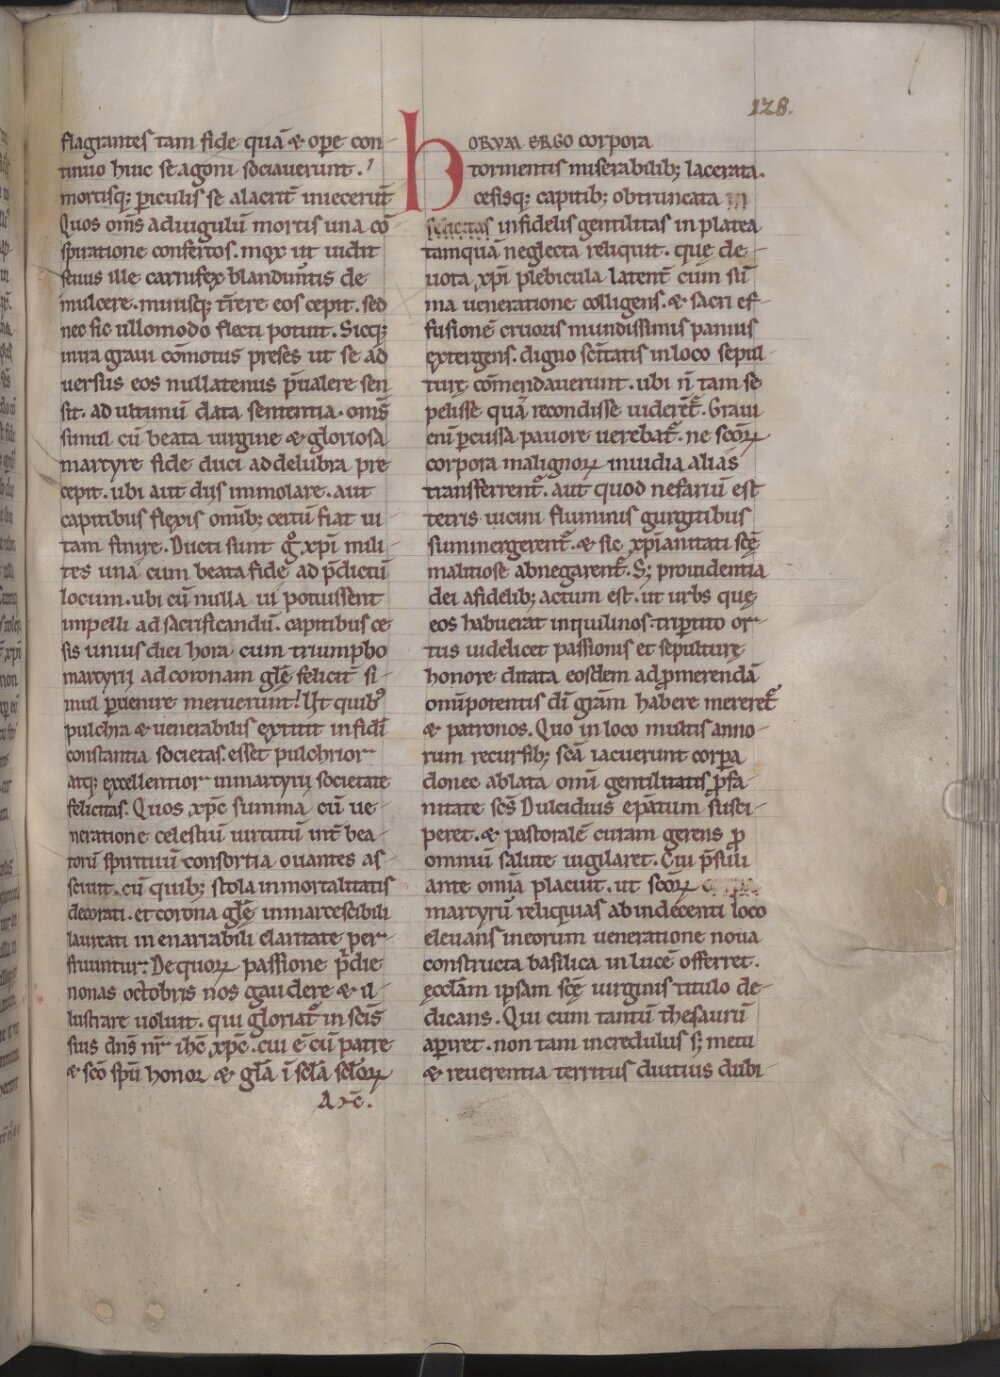 128.
flagrantes tam fide quā & ope con-
tinuo huic se agoni sociauerunt.
mortisq; ꝑiculis se alacrit̄ iniecer̄t
Quos om̄s ad uigulum mortis una cō
spiratione confertos. mox ut uidit
seuus ille carnifex blandim̄tis de
mulcere. minisq; t̄rere eos cepit. sed
nec sic ullomodo flecti potuit. Sicq;
inira graui cōmotus preses ut se ad
uersus eos nullatenus p̄ualere sen
sit. ad ultimū data sententia. om̄s
simul cū beata uirgine & gloriosa
martyre fide duci ad delubra pre
cepit. ubi aut diis immolare. aut
capitibus flexis omīb; certū fiat ui
tam finire. Ducti sunt gͦ xp̄i mili
tes una cum beata fide ad p̄dictū
locum. ubi cū nulla ui potuissent
impelli ad sacrificandū. capitibus ce
sis unius diei hora cum triumpho
martyrii ad coronam gl̄ę felicit̄ si
mul ꝑuenire meruerunt! Ut quibꝰ
pulchra & uenerabilis extitit in fidī
constantia societas. esset pulchrior
atq; excellentior in martyrii societate
felicitas. Quos xp̄c summa cū ue-
neratione celestiū uirtutū int̄ bea-
torū spirituū consortia ouantes as-
sciuit. cū quib; stola inmortalitatis
decorati. et corona gl̄ę inmarcescibili
laureati in enarrabili claritate per-
fruuntur. De quoꝝ passione p̄die
nonas octobris nos gaudere & il-
lustrare uoluit. qui gloriat̄ in sc̄is
suis dn̄s nr̄ ih̄c xp̄c. cui ē cū patre
& sc̄o sp̄u honor & gl̄a ī scl̄a scl̄oꝝ
Am̄.
hORVM ERGO corpora
tormentis miserabilib; lacerata.
cesisq; capitib; obtruncata in
infidelis gentilitas in platea
tamquā neglecta reliquit. quę de-
uota xp̄i plebicula latent̄ cum sū
ma ueneratione colligens. & sacri ef-
fusionē cruoris mundissimis pannis
extergens. digno sc̄itatis in loco sepul-
turę cōmendauerunt. ubi n̄ tam se
pelisse quā recondisse uiderēt̄. Graui
eni ꝑcussa pauore uerebat̄. ne sc̄oꝝ
corpora malignoꝝ inuidia alias
transferrent̄. aut quod nefariū est
tetris uicini fluminis gurgitibus
summergerent̄. & sic xp̄ianitati sc̄ę
malitiose abnegarent̄. S; prouidentia
dei a fidelib; actum est. ut urbs quę
eos habuerat inquilinos triꝑtito or-
tus uidelicet passionis et sepulturę
honore ditata eosdem ad ꝓmerendā
omīpotentis dī gr̄am habere mereret̄
& patronos. Quo in loco multis anno-
rum recursib; sc̄a iacuerunt corpa
donec ablata omī gentilitatis ꝓfa-
nitate sc̄s Dulcidius ep̄atum susci-
peret. & pastoralē curam gerens ꝓ
omniū salute uigilaret. Cui p̄suli
ante omīa placuit. ut sc̄oꝝ
martyrū reliquias ab indecenti loco
eleuans in eorum ueneratione noua
constructa basilica in lucē offerret.
ęccl̄am ipsam sc̄ę uirginis titulo de-
dicans. Qui cum tantū thesaurū
aꝑiret. non tam incredulus s; metu
& reuerentia territus diutius dubi-